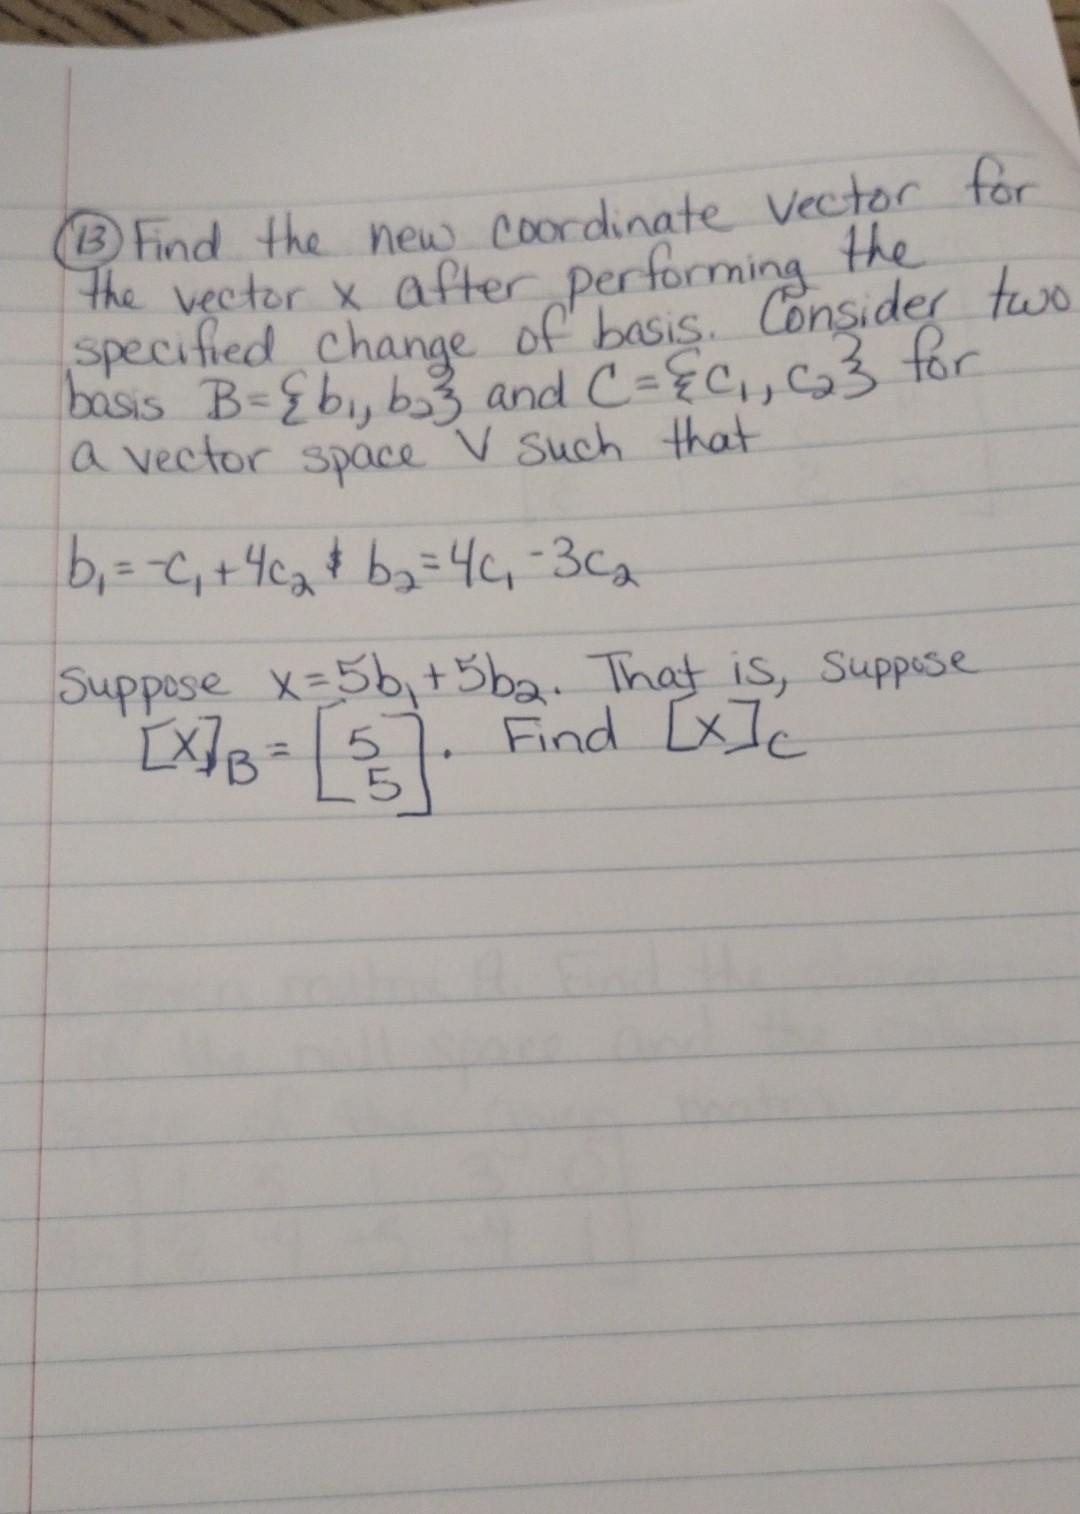 13 Find the new coordinate vector for
the vector x after performing the
specified change of basis. Consider two
basis B={b1, b2} and C={C1, C2} for
a vector space V such that
b1=-C1+4C2 & b2=4C1-3C2
Suppose x=5b1+5b2. That is, suppose
[X]B=[5 5]. Find [x]C